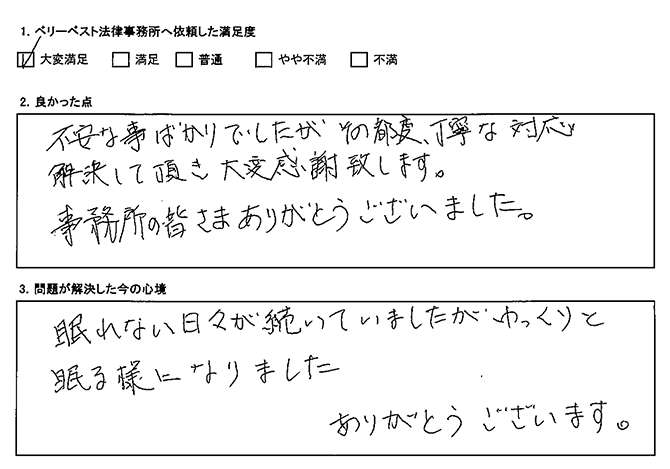 1. ベリーベスト法律事務所へ依頼した満足度
☑ 大変満足 □ 満足 □ 普通 □ やや不満 □ 不満
2. 良かった点
不安な事ばかりでしたが その都度、丁寧な対応
解決して頂き 大変感謝致します。
事務所の皆さまありがとうございました。
3. 問題が解決した今の心境
眠れない日々が続いていましたが ゆっくりと
眠る様になりました
ありがとうございます。